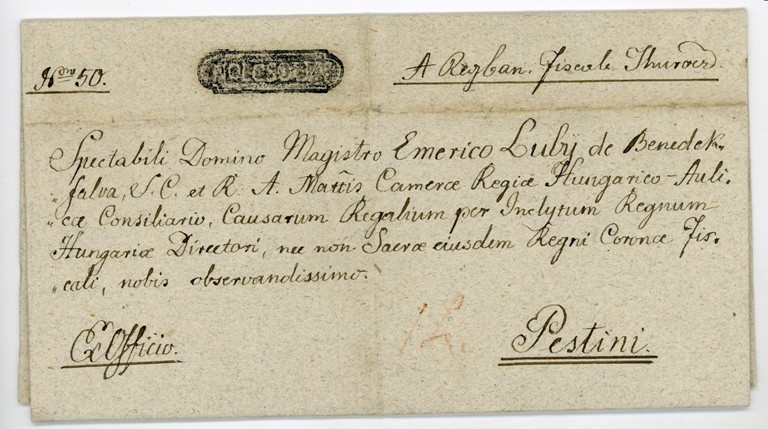 Nro 50.
A Regban. Fiscale Thurocz.
Spectabili Domino Magistro Emerico Luby de Benedek„
„falva, S. C. et R. A. Mattis Cameræ Regiæ Hungarico-Auli„
„cæ Consiliario, Causarum Regalium per Inclytum Regnum
Hungariæ Directori, nec non Sacræ eiusdem Regni Coronæ Fis„
„cali, nobis observandissimo.
Ex Officio.
Pestini.